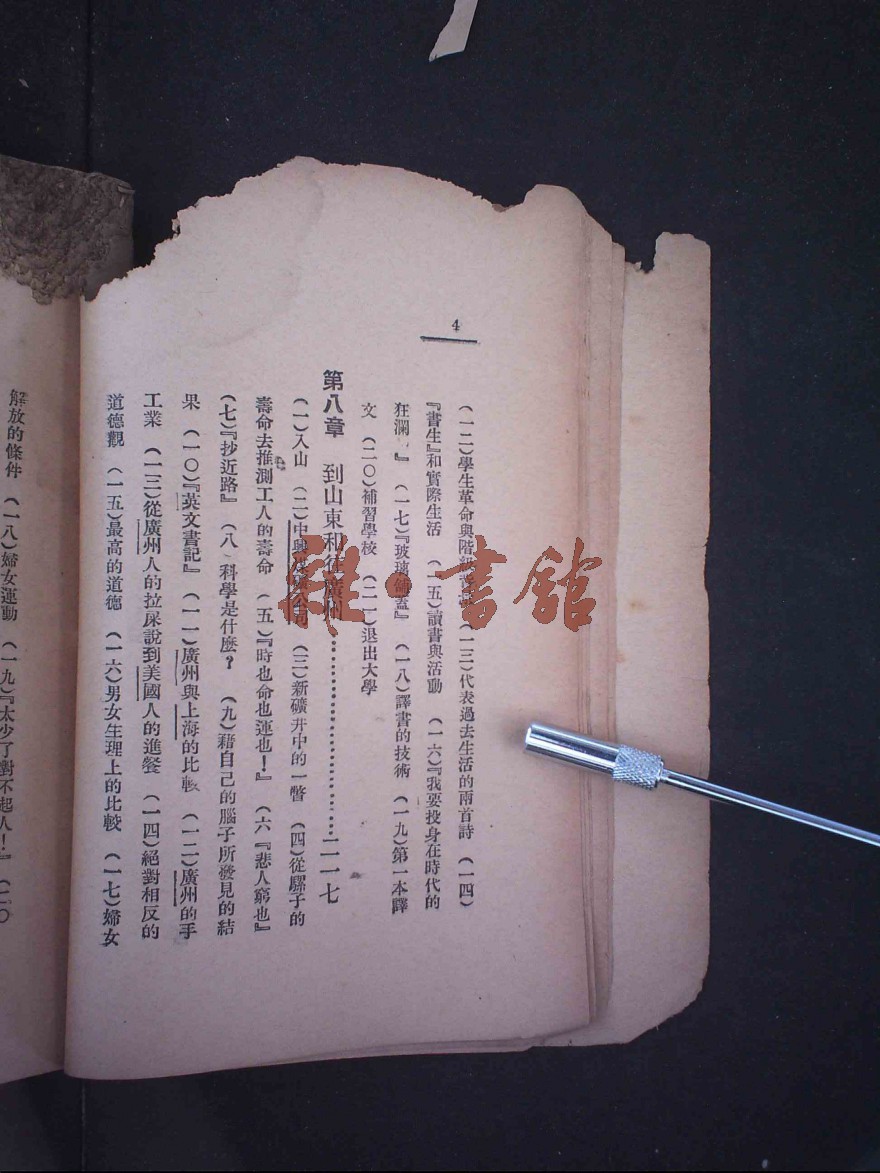 4
（一二）學生革命與階（一三）代表過去生活的兩首詩　（一四）
『書生』和實際生活　（一五）讀書與活動　（一六）『我要投身在時代的
狂瀾』　（一七）『玻璃鋪蓋』　（一八）譯書的技術　（一九）第一本譯
文　（二〇）補習學校　（二一）退出大學
第八章　到山東和往廣州……………………二一七
（一）入山　（二）中興煤礦公司　（三）新礦井中的一瞥　（四）從騾子的
壽命去推測工人的壽命　（五）『時也命也運也！』　（六『悲人窮也』
（七）『抄近路』　（八、科學是什麼？　（九）藉自己的腦子所發見的結
果　（一〇）『英文書記』　（一一）廣州與上海的比較　（一二）廣州的手
工業　（一三）從廣州人的拉屎說到美國人的進餐　（一四）絕對相反的
道德觀　（一五）最高的道德　（一六）男女生理上的比較　（一七）婦女
解放的條件　（一八）婦女運動　（一九）『太少了對不起人！』　（二〇
雜·書館